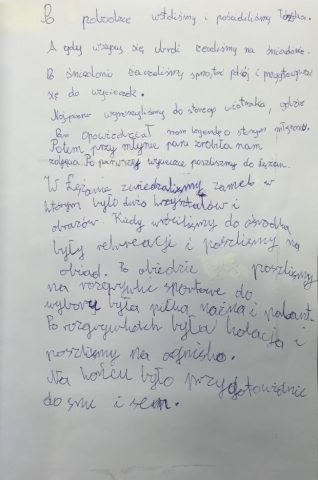 O pobudce wstaliśmy i pościeliliśmy łóżka.
A gdy wszyscy się ubrali zeszliśmy na śniadanie.
Po śniadaniu zaczeliśmy sprzątać pokój i przygotowywać
się do wycieczek.
Najpierw wyruszyliśmy do starego wiatraka, gdzie
Pan opowiedział nam legendę o starym młynarzu.
Potem przy młynie pani zrobiła nam
zdjęcia. Po pierwszej wycieczce poszliśmy do
W zwiedzaliśmy zamek w
którym było dużo kryształów i
obrazów. Kiedy wróciliśmy do ośrodka
były rekreacje i poszliśmy na
obiad. Po obiedzie poszliśmy
na rozgrywki sportowe do
wyboru była piłka nożna i palant.
Po rozgrywkach była kolacja i
poszliśmy na ognisko.
Na końcu było przygotowanie
do snu i sen.